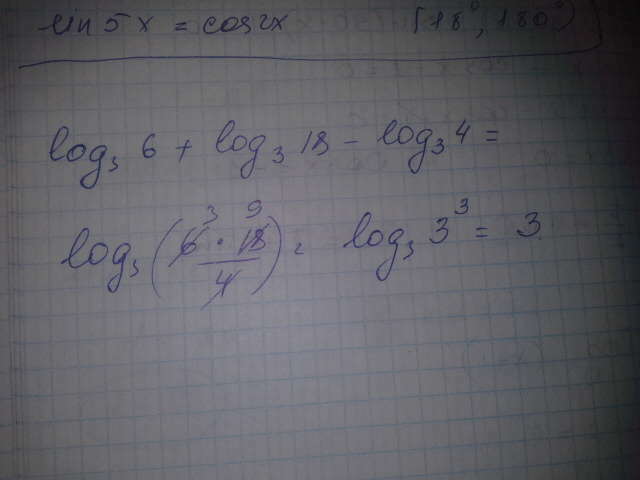 sin 5x = cos 2x [18°, 180°)
log₃ 6 + log₃ 18 - log₃ 4 =
log₃ (6³ · 18⁹ / 4) = log₃ 3³ = 3